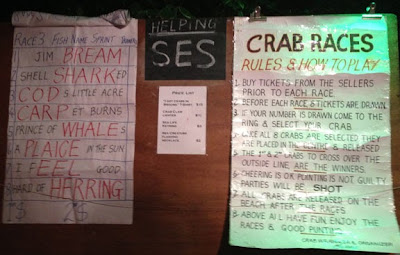 RACE 3 FISH NAME SPRINT
JIM BREAM
SHELL SHARKED
COD S LITTLE ACRE
CARPET BURNS
PRINCE OF WHALES
A PLAICE IN THE SUN
I FEEL GOOD
HARD OF HERRING
HELPING
SES
PRICE LIST
CRAB RACES
RULES & HOW TO PLAY
1 BUY TICKETS FROM THE SELLERS
PRIOR TO EACH RACE
2 BEFORE EACH RACE 8 TICKETS ARE DRAWN
3 IF YOUR NUMBER IS DRAWN COME TO THE
RING & SELECT YOUR CRAB
4 ONCE ALL 8 CRABS ARE SELECTED THEY
ARE PLACED IN THE CENTRE & RELEASED
5 THE 1st & 2nd CRABS TO CROSS OVER THE
OUTSIDE LINE, ARE THE WINNERS
6 CHEERING IS OK POINTING IS NOT GUILTY
PARTIES WILL BE SHOT
7 ALL CRABS ARE RELEASED ON THE
BEACH AFTER THE RACES
8 ABOVE ALL HAVE FUN, ENJOY THE
RACES & GOOD PUNTING